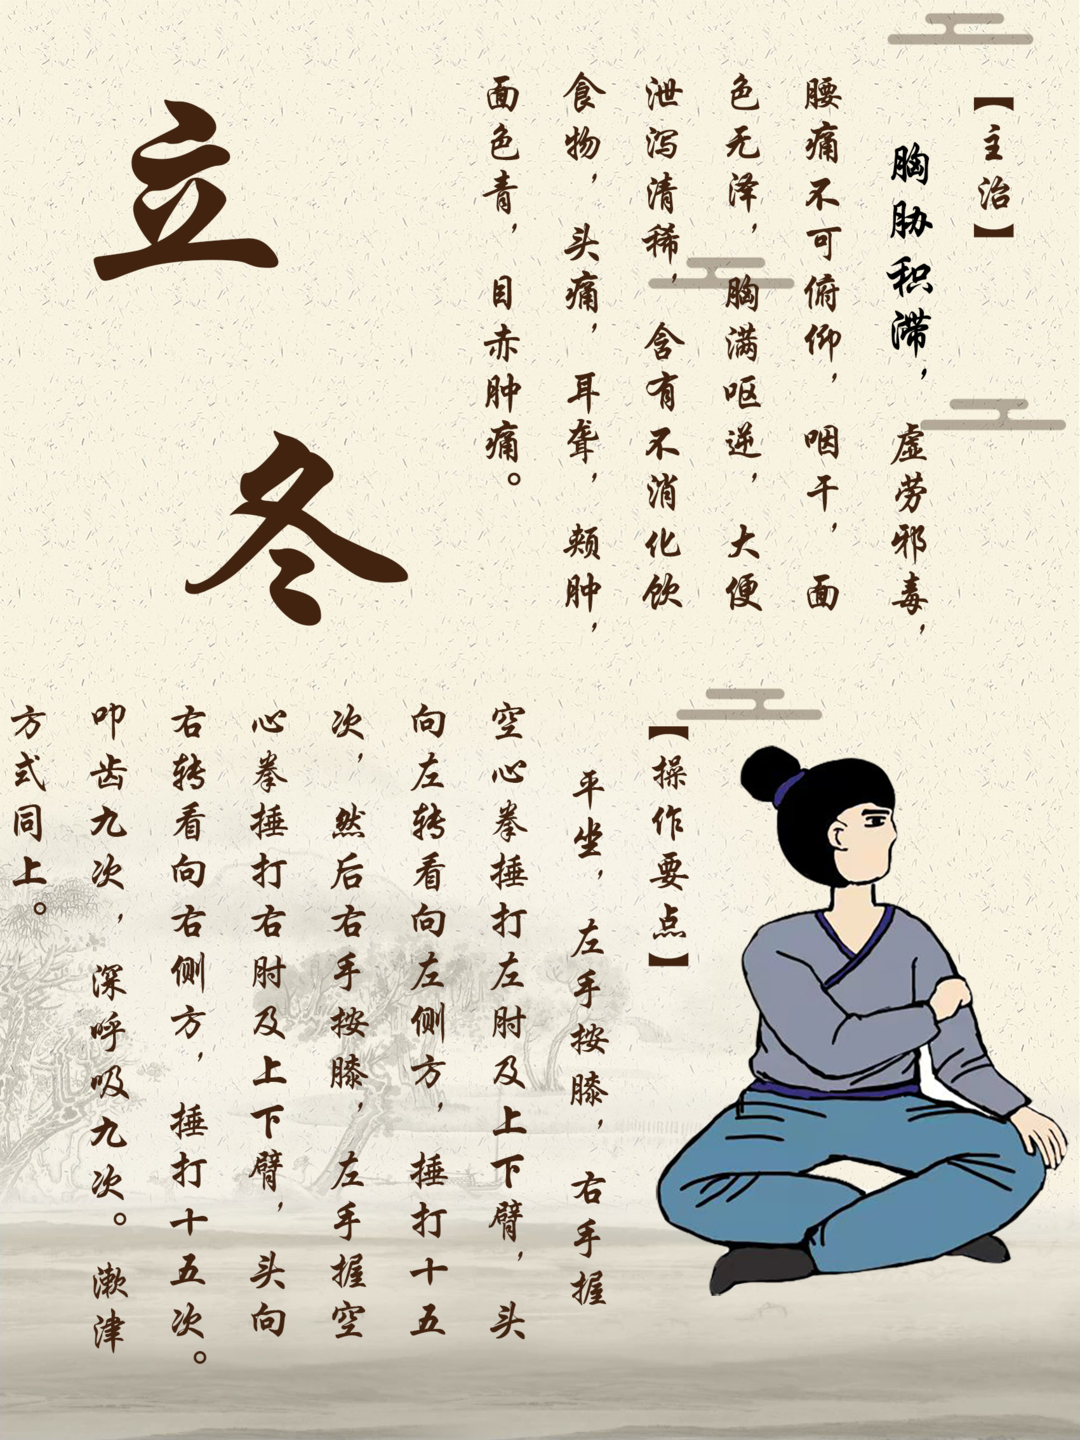 立冬
【主治】
胸胁积滞，虚劳邪毒，
腰痛不可俯仰，咽干，面
色无泽，胸满呕逆，大便
泄泻清稀，含有不消化饮
食物，头痛，耳聋，颊肿，
面色青，目赤肿痛。
【操作要点】
平坐，左手按膝，右手握
空心拳捶打左肘及上下臂，头
向左转看向左侧方，捶打十五
次，然后右手按膝，左手握空
心拳捶打右肘及上下臂，头向
右转看向右侧方，捶打十五次。
叩齿九次，深呼吸九次。漱津
方式同上。